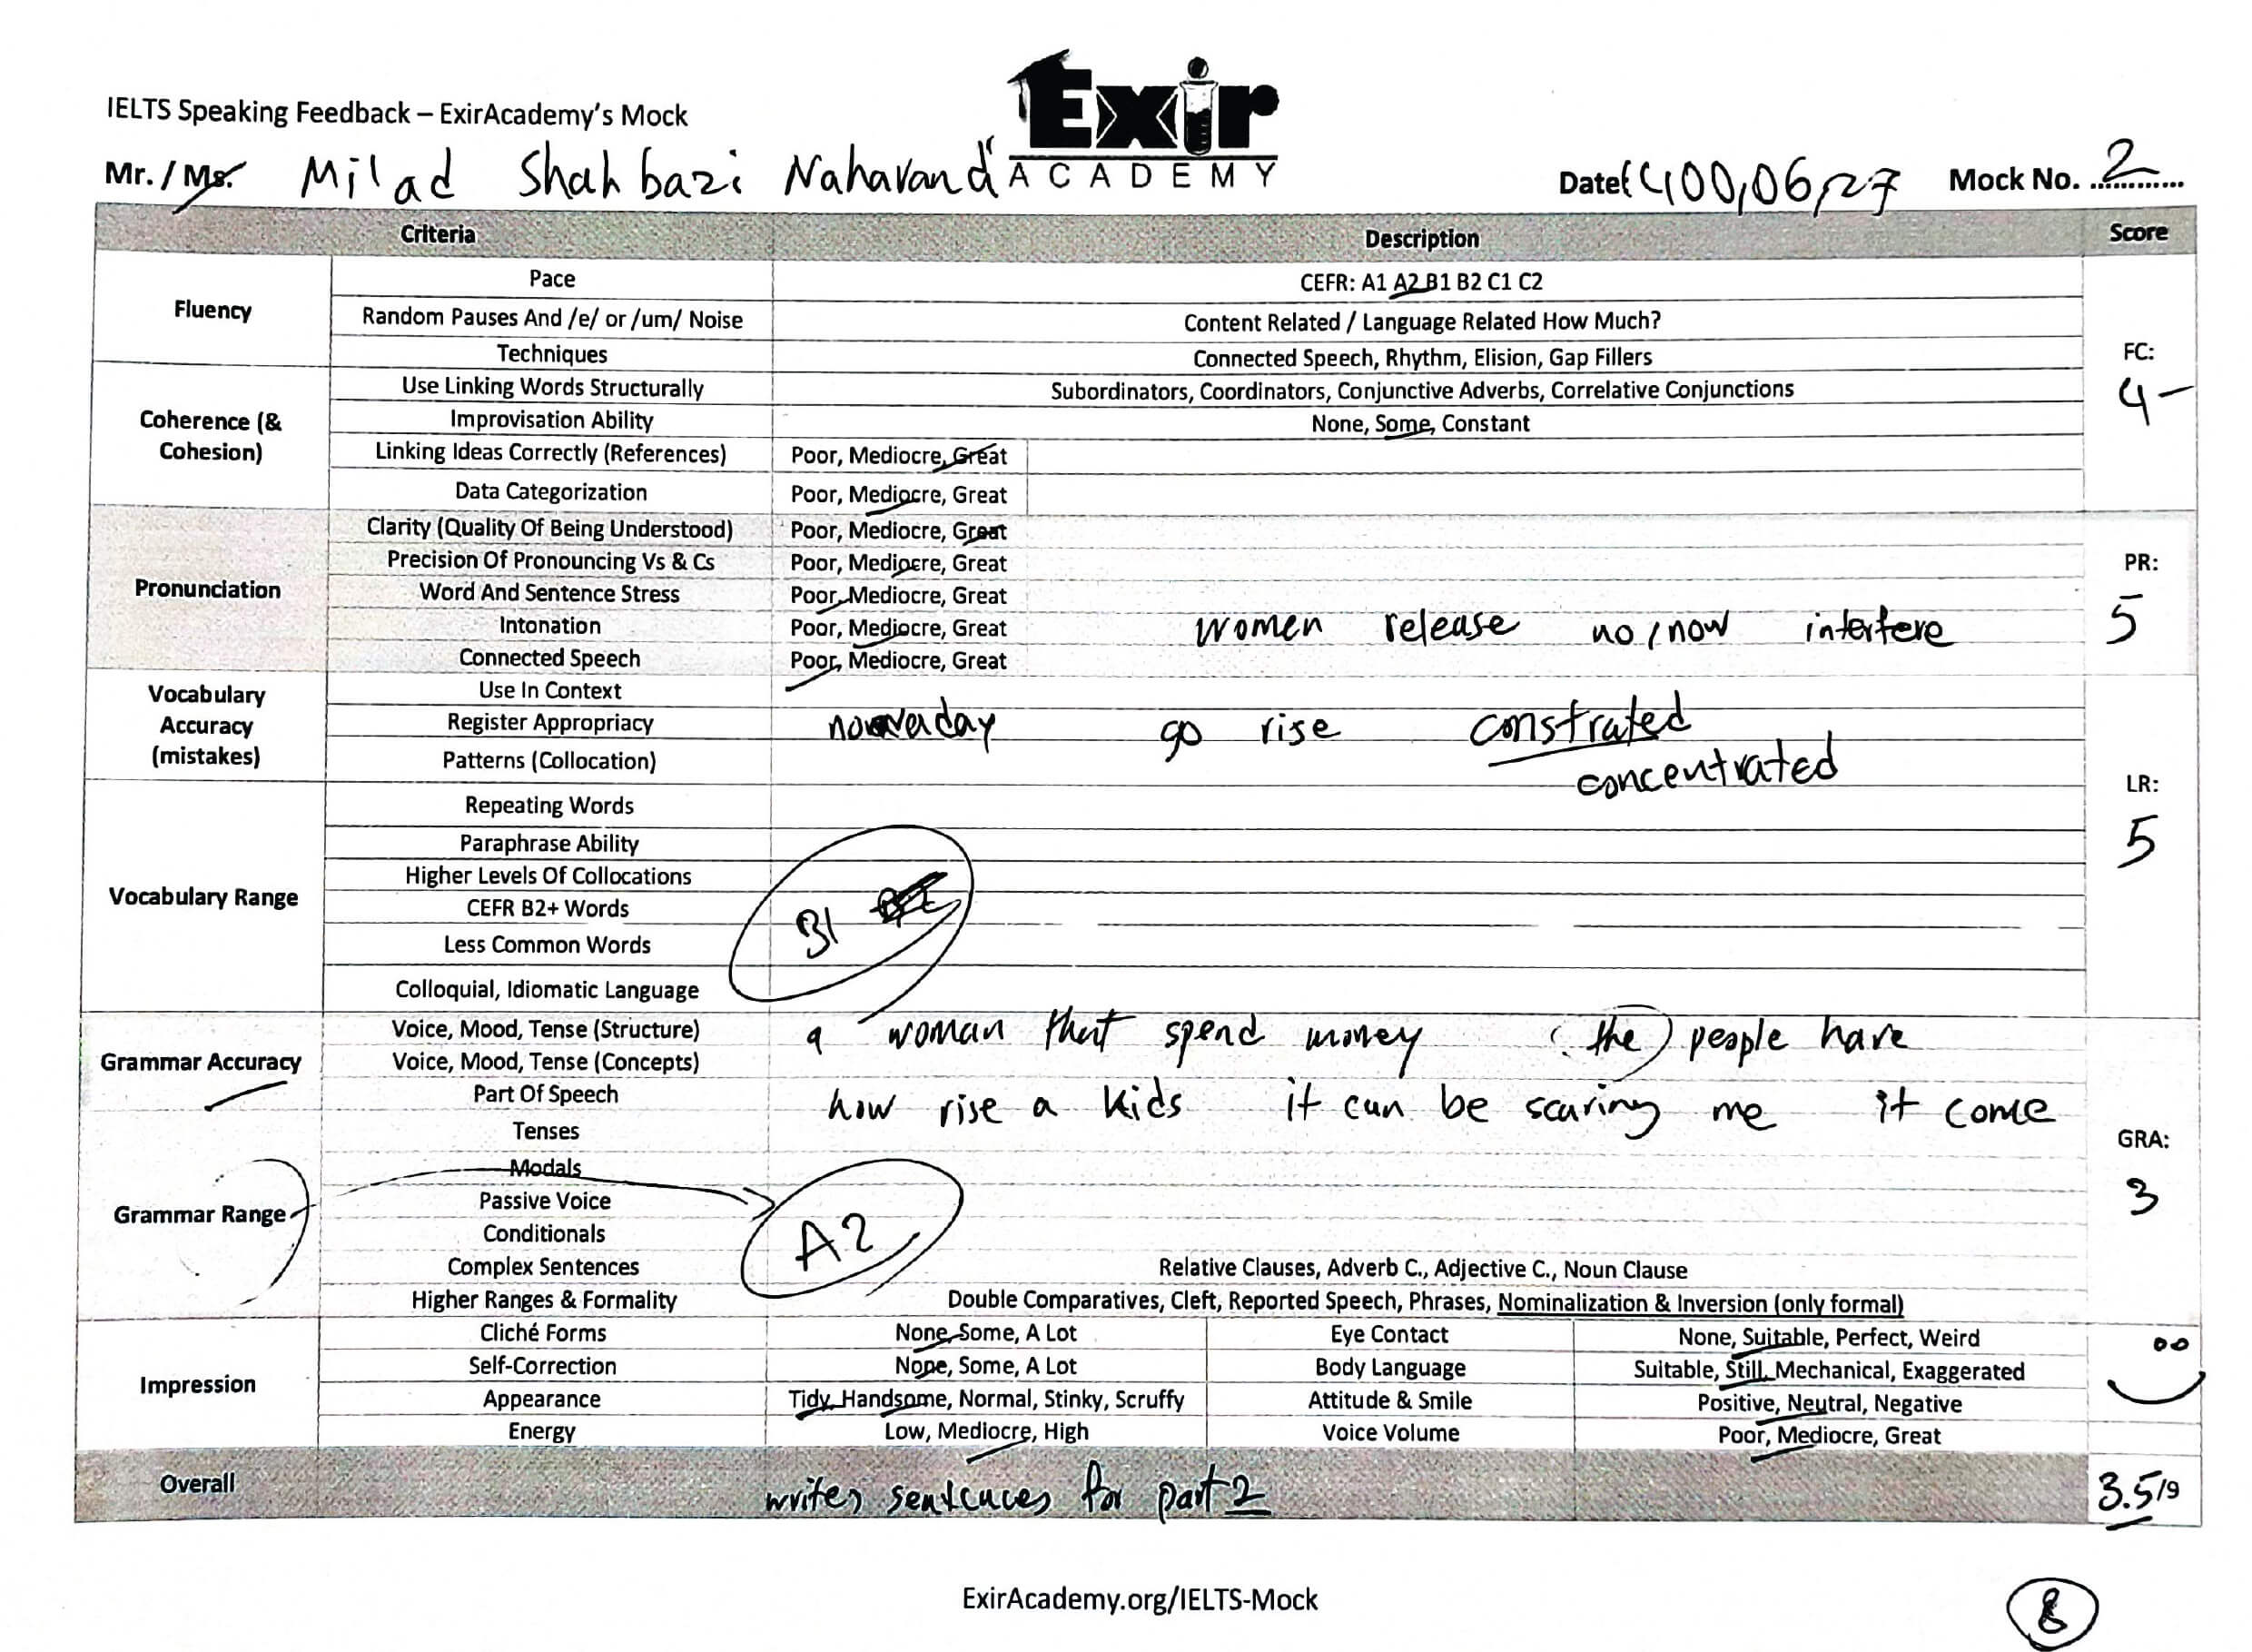 IELTS Speaking Feedback – ExirAcademy's Mock
Exir
ACADEMY
Mr. / Ms. Milad Shahbazi Nahavandi Date: 1400,06,27 Mock No. 2
Criteria Description Score
Fluency Pace CEFR: A1 A2 B1 B2 C1 C2
Random Pauses And /e/ or /um/ Noise Content Related / Language Related How Much?
Techniques Connected Speech, Rhythm, Elision, Gap Fillers
FC:
4-
Coherence (& Cohesion) Use Linking Words Structurally Subordinators, Coordinators, Conjunctive Adverbs, Correlative Conjunctions
Improvisation Ability None, Some, Constant
Linking Ideas Correctly (References) Poor, Mediocre, Great
Data Categorization Poor, Mediocre, Great
Pronunciation Clarity (Quality Of Being Understood) Poor, Mediocre, Great
Precision Of Pronouncing Vs & Cs Poor, Mediocre, Great
Word And Sentence Stress Poor, Mediocre, Great
Intonation Poor, Mediocre, Great women release no/now interfere
Connected Speech Poor, Mediocre, Great
PR:
5
Vocabulary Accuracy (mistakes) Use In Context
Register Appropriacy nowaday go rise constrated
Patterns (Collocation) concentrated
Vocabulary Range Repeating Words
Paraphrase Ability
Higher Levels Of Collocations
CEFR B2+ Words B1
Less Common Words
Colloquial, Idiomatic Language
LR:
5
Grammar Accuracy Voice, Mood, Tense (Structure) a woman that spend money (the) people have
Voice, Mood, Tense (Concepts)
Part Of Speech how rise a kids it can be scaring me it come
Grammar Range Tenses
Modals
Passive Voice
Conditionals A2
Complex Sentences Relative Clauses, Adverb C., Adjective C., Noun Clause
Higher Ranges & Formality Double Comparatives, Cleft, Reported Speech, Phrases, Nominalization & Inversion (only formal)
GRA:
3
Impression Cliché Forms None, Some, A Lot Eye Contact None, Suitable, Perfect, Weird
Self-Correction None, Some, A Lot Body Language Suitable, Still, Mechanical, Exaggerated
Appearance Tidy, Handsome, Normal, Stinky, Scruffy Attitude & Smile Positive, Neutral, Negative
Energy Low, Mediocre, High Voice Volume Poor, Mediocre, Great
Overall writes sentences for part 2 3.5/9
ExirAcademy.org/IELTS-Mock